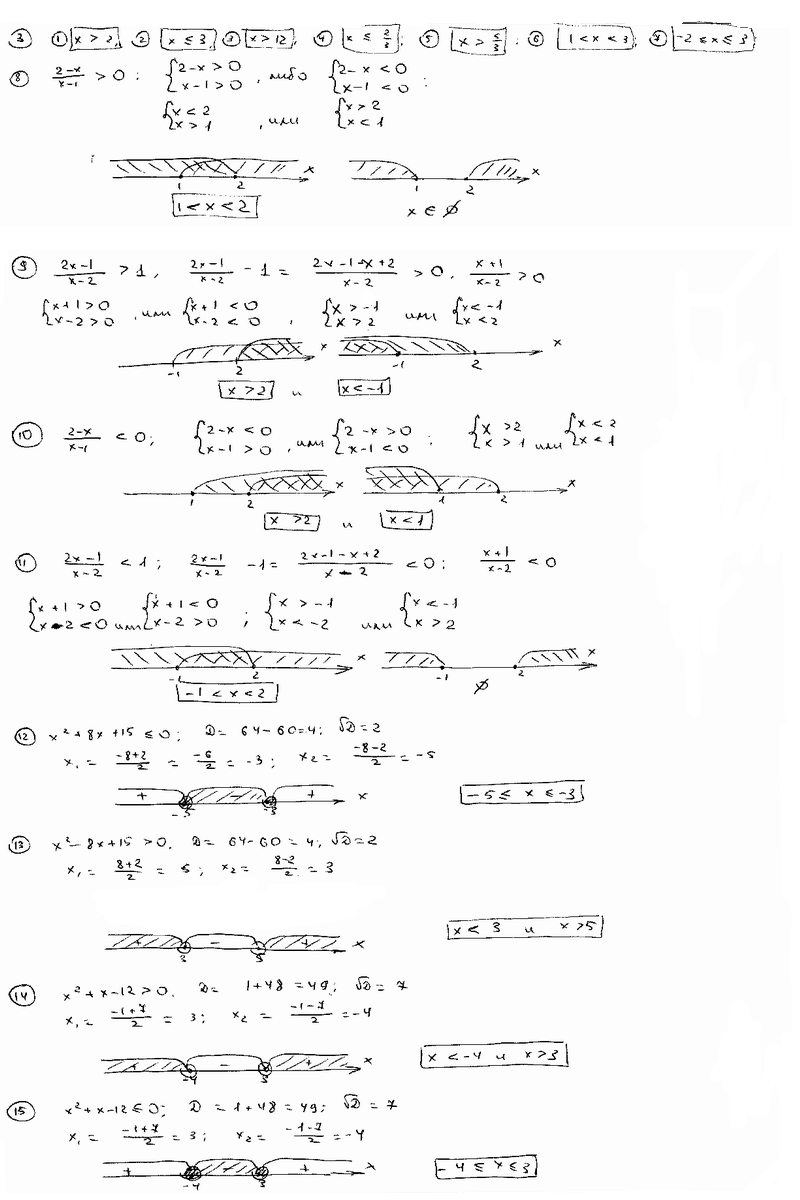 ③ ① x > 2, ② x ≤ 3; ③ x > 12; ④ x ≤ 2/3; ⑤ x > 5/3; ⑥ 1 < x < 3; ⑦ -2 ≤ x ≤ 3
⑧ (2-x)/(x-1) > 0; {2-x > 0 x-1 > 0, либо {2-x < 0 x-1 < 0:
{x < 2 x > 1, или {x > 2 x < 1
1 2 x 1 2 x
1 < x < 2 x ∈ ∅
⑨ (2x-1)/(x-2) > 1, (2x-1)/(x-2) - 1 = (2x-1-x+2)/(x-2) > 0, (x+1)/(x-2) > 0
{x+1 > 0 x-2 > 0, или {x+1 < 0 x-2 < 0, {x > -1 x > 2 или {x < -1 x < 2
-1 2 x -1 2 x
x > 2 и x < -1
⑩ (2-x)/(x-1) < 0; {2-x < 0 x-1 > 0, или {2-x > 0 x-1 < 0; {x > 2 x > 1 или {x < 2 x < 1
1 2 x 1 2 x
x > 2 и x < 1
⑪ (2x-1)/(x-2) < 1; (2x-1)/(x-2) - 1 = (2x-1-x+2)/(x-2) < 0; (x+1)/(x-2) < 0
{x+1 > 0 x-2 < 0 или {x+1 < 0 x-2 > 0; {x > -1 x < -2 или {x < -1 x > 2
-1 2 x -1 2 x
-1 < x < 2 ∅
⑫ x²+8x+15 ≤ 0; D = 64-60=4; √D=2
x₁ = (-8+2)/2 = -6/2 = -3; x₂ = (-8-2)/2 = -5
+ - + x
-5 -3
-5 ≤ x ≤ -3
⑬ x²-8x+15 > 0. D = 64-60 = 4; √D=2
x₁ = (8+2)/2 = 5; x₂ = (8-2)/2 = 3
x < 3 и x > 5
+ - + x
3 5
⑭ x²+x-12 > 0. D = 1+48 = 49; √D = 7
x₁ = (-1+7)/2 = 3; x₂ = (-1-7)/2 = -4
x < -4 и x > 3
+ - + x
-4 3
⑮ x²+x-12 ≤ 0; D = 1+48 = 49; √D = 7
x₁ = (-1+7)/2 = 3; x₂ = (-1-7)/2 = -4
+ - + x
-4 3
-4 ≤ x ≤ 3